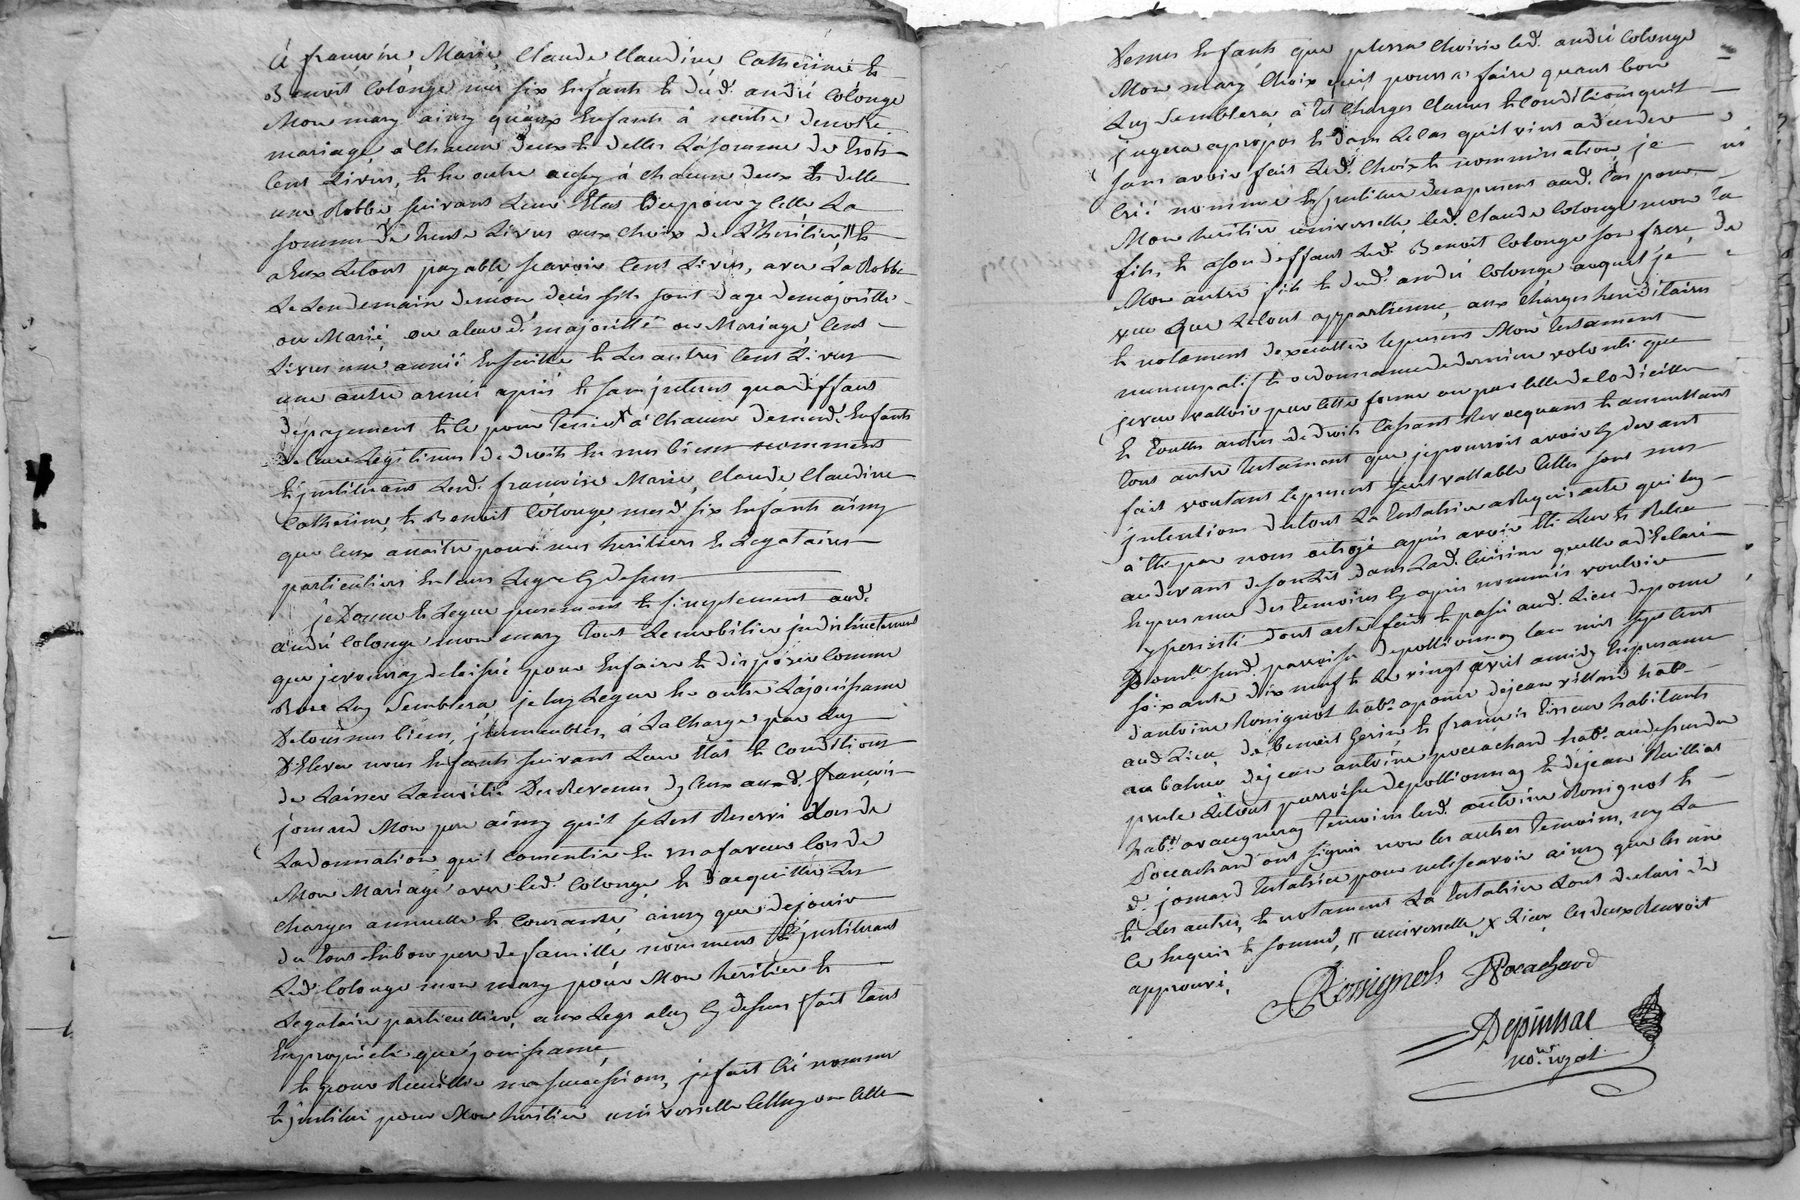 à françoise, Marie, Claude Claudine Catherine et
Benoit Colonge mes six Enfants et dud. andré Colonge
Mon mary ainsy qu'aux Enfants à naitre denotre
mariage, à Chacun deux et delles Lasomme de trois
Cent Livres, et En outre aussy à Chacune deux et delle
une Robbe suivant Leur Etat Ou pour y celle La
somme de trente Livres aux Choix de L'héritier, // et
a Eux Letout payable scavoir Cent Livres, avec La Robbe
Le Lendemain demon décès s'ils sont d'age demajorité
ou Marié, ou aleur d. majorité ou Mariage Cent
Livres une année Ensuitte et Les autres Cent Livres
une autre année après et sans interets qu'adeffaut
depayement et Ce pour tenir x à Chacun demesd. Enfants
de Leur Legitimes de droits En mes biens nomment
Et instituant Lesd. françoise Marie, Claude, Claudine
Catherine, et Benoit Colonge, mesd. six Enfants ainsy
que Ceux anaitre pour mes heritiers et Legataires
particulliers En Leurs Legs Cy dessus
je Donne et Legue purement et simplement aud.
andré Colonge mon mary tout Lemobilier indistinctement
que jevouray delaissé pour Enfaire et disposer Comme
Bon Luy Semblera je luy Legue En outre Lajouissance
De tous mes biens, immeubles, à La Charge par Luy
D'Elever nous Enfants suivant Leur Etat et Conditions
de Laisser Lamoitié Des Revenus dy Ceux aud. françois
jomard Mon pere ainsy quil se L'est Reservé Lors de
Ladonnation quil Consentie En mafaveur Lors de
Mon Mariage avec led. Colonge, et d'acquitter Les
Charges annuelle et Courante, ainsy que dejouir
du tout En bon pere defamille, nomment et instituant
Led. Colonge mon mary pour Mon heritier et
Legataire particullier, aux Legs aluy Cy dessus fait tant
En proprieté que jouissance,
Et pour Recuillir ma succession, jefait Créé nomme
Et institue pour Mon heritier universelle Celluy ou Celle
Demes Enfants que poura Choisir led. andré Colonge
Mon mary Choix quil pourra faire quant bon
Luy Semblera à tel Charges Clauses et Conditions quil
jugera apropos et dans Le Cas quil vint adeceder
sans avoir fait Led. Choix et nommination, je
Créé nomme et institue desapresent aud. Cas pour
Mon heritier universelle, led. Claude Colonge mon
fils, et ason deffaut Led. Benoit Colonge son frere,
Mon autre fils et dud. andré Colonge auquel je
veu que Letout appartienne, aux Charges hereditaires
et notament dexecutter Lepresent Mon testament
nuncupatif et ordonnance dederniere volonté que
jeveu valloir par Cette forme ou par Celle de Codicille
et touttes autres de droit Cassant Revocquant et annullant
tout autre testament que jepourrois avoir Cy devant
fait voulant Lepresent seul vallable Telles sont mes
intentions dutout La testatrice aRequis acte qui luy
a Eté par nous octroyé après avoir Eté Leu et Releu
audevant deson Lit dans Lad. Cuisine quelle adéclaré
En presence des temoins Cy après nommés vouloir
y persisté dont acte fait et passé aud. Lieu
susd. parroisse depollionnay Lan mil sept cent
soixante dix neuf et Le vingt avril amidy En presence
d'antoine Rossignol habt. dejean villard habt.
aud. Lieu, de benoit Gerin et françois Tisseur habitants
dejean antoine pocachard habt. audessusdu
parroisse depollionnay et dejean Ruilliat
habt. avaugneray temoins lesd. antoine Rossignol et
Pocachard ont signés non les autres temoins, ny La
d. jomard testatrice pour nele scavoir ainsy que les uns
et Les autres, et notament La testatrice L'ont declaré de
Ce Enquis et sommé, // universelle, x Lieu, Les deux Renvoit
approuvé,
Rossignols Pocachard
Depinsac
nore. royal